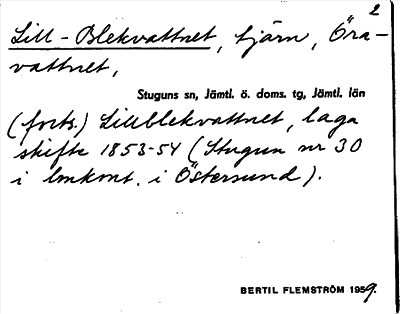 2
Lill-Blekvattnet, tjärn, Öra-
vattnet,
Stuguns sn, Jämtl. ö. doms. tg, Jämtl. län
(forts.) Lillblekvattnet, laga
skifte 1853-54 (Stugun nr 30
i lmkont. i Östersund).
BERTIL FLEMSTRÖM 1959.